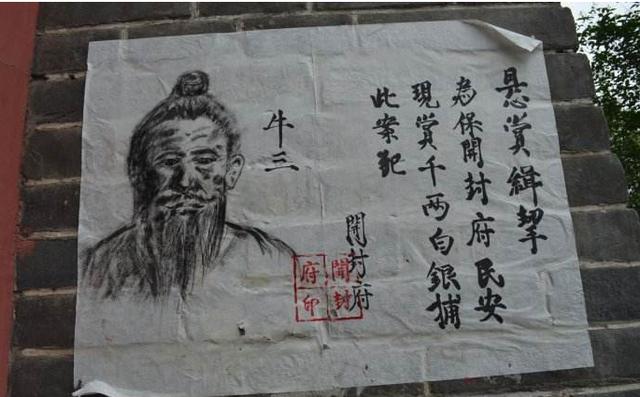 悬賞緝拏
為保開封府民安
現賞千两白銀捕
此案犯
開封府
開封
府印
牛三